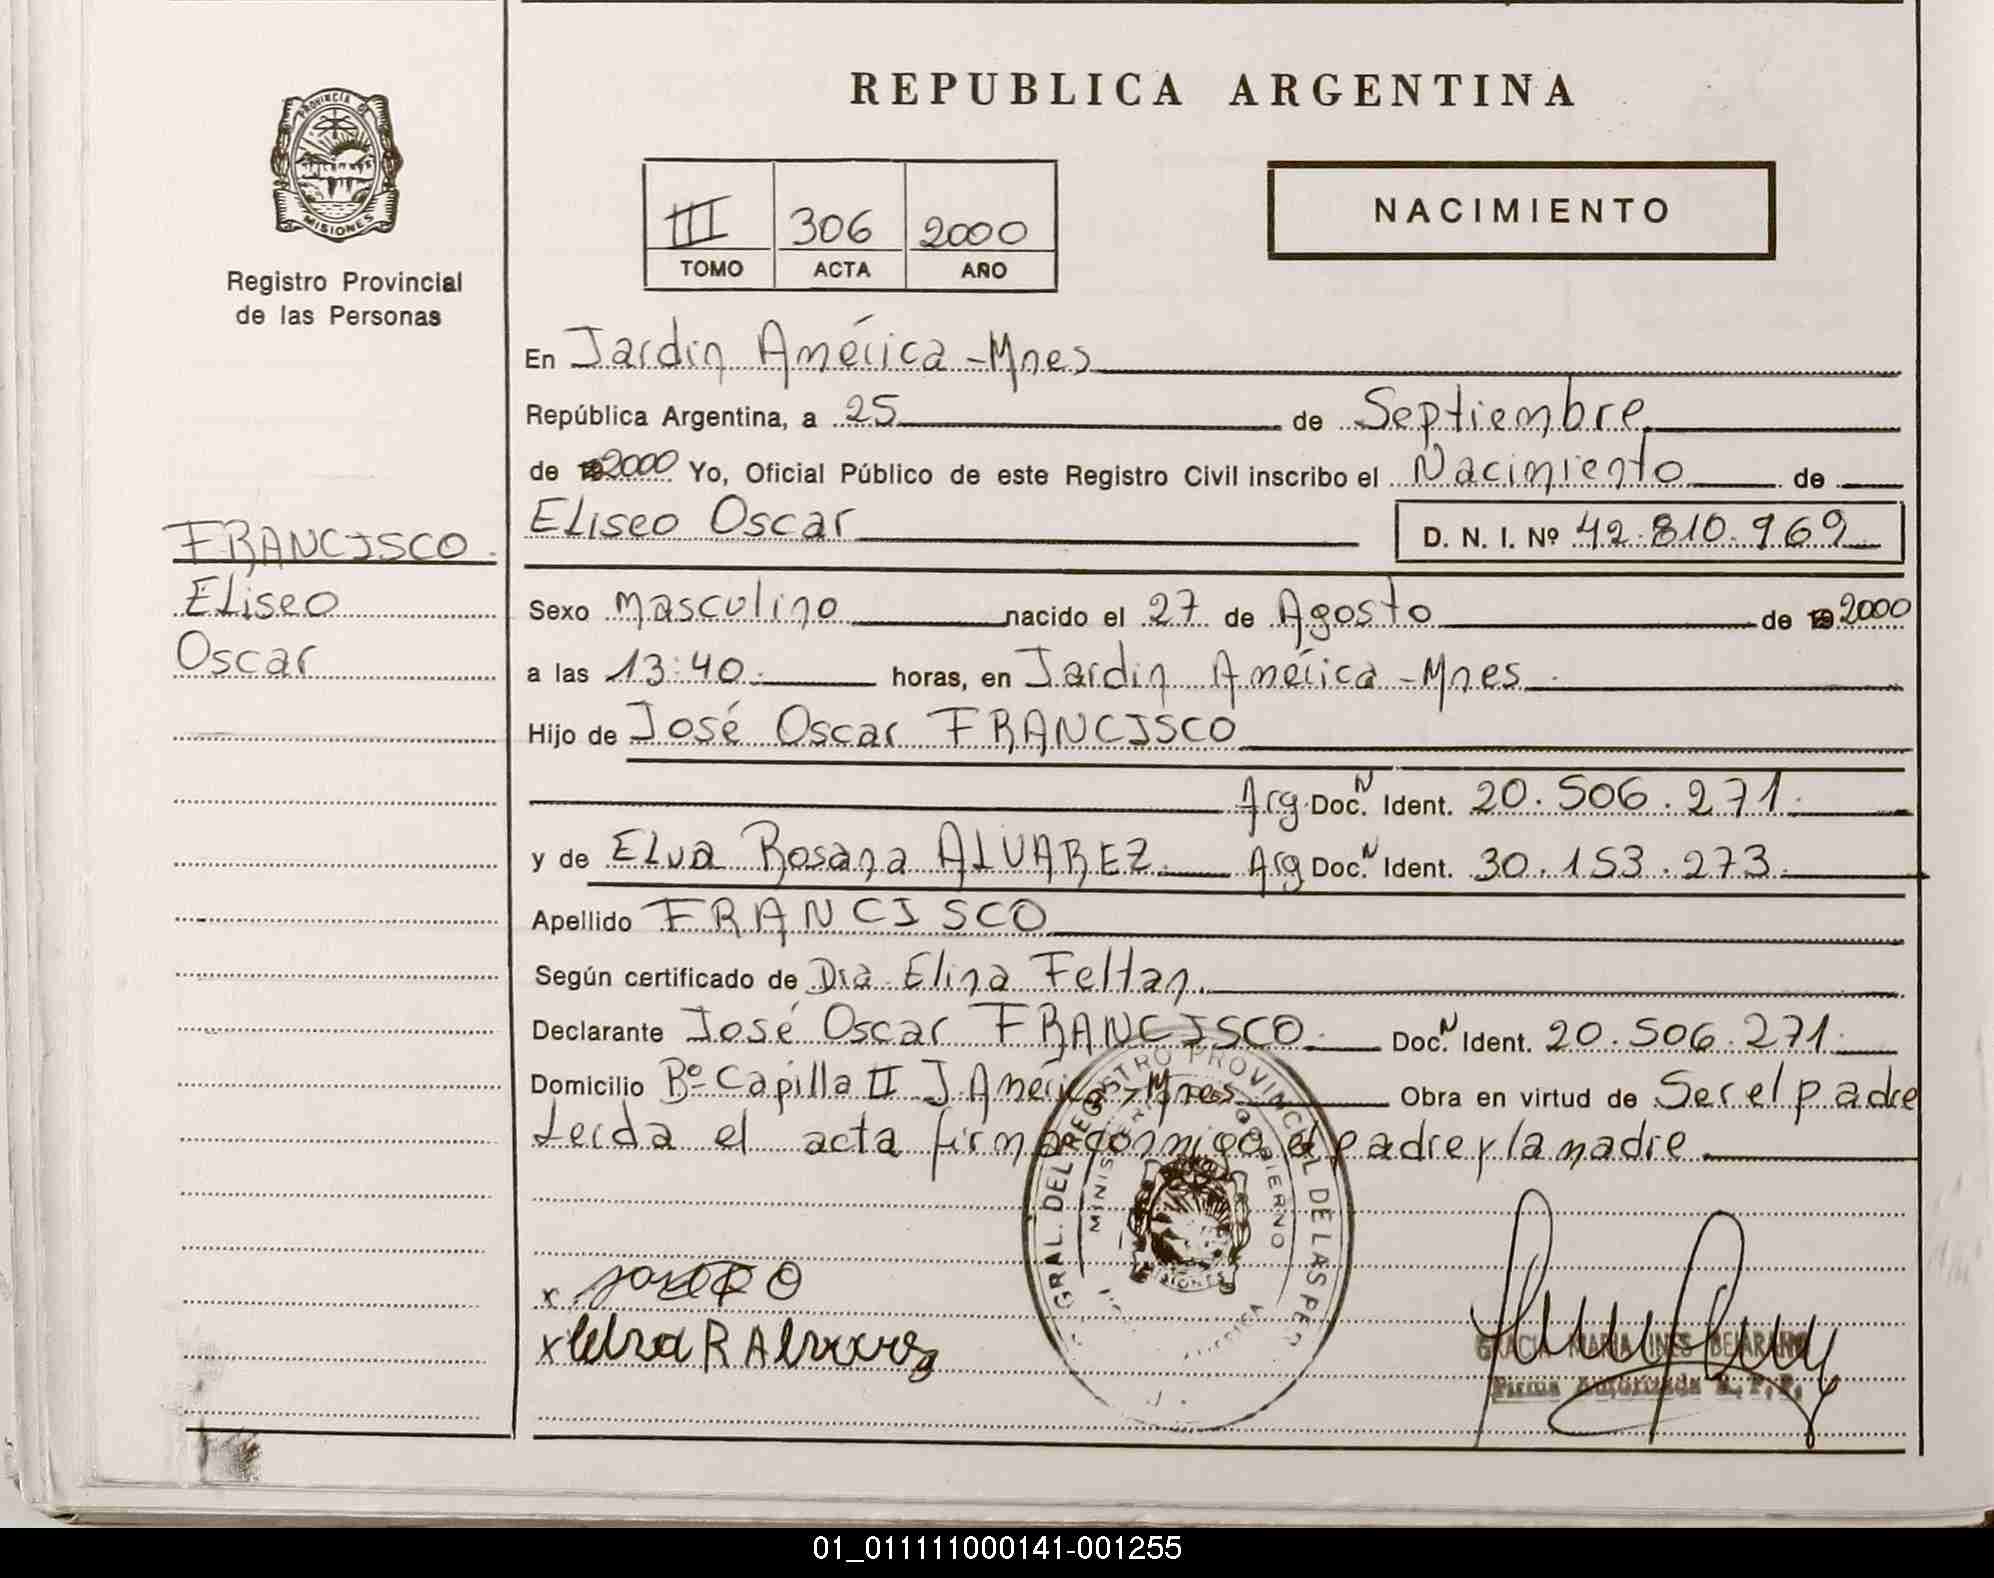 REPUBLICA ARGENTINA
PROVINCIA DE
MISIONES
Registro Provincial
de las Personas
III 306 2000
TOMO ACTA AÑO
NACIMIENTO
En Jardin América - Mnes
República Argentina, a 25 de Septiembre
de 2000 Yo, Oficial Público de este Registro Civil inscribo el Nacimiento de
Eliseo Oscar D. N. I. Nº 42.810.969
FRANCISCO
Eliseo
Oscar
Sexo masculino nacido el 27 de Agosto de 2000
a las 13:40 horas, en Jardin América - Mnes
Hijo de José Oscar FRANCISCO
Arg Doc. N Ident. 20.506.271
y de Elva Rosana ALVAREZ Arg Doc. N Ident. 30.153.273
Apellido FRANCISCO
Según certificado de Dra Elina Feltan
Declarante José Oscar FRANCISCO Doc. N Ident. 20.506.271
Domicilio Bº Capilla II J. América - Mnes Obra en virtud de Ser el padre
Leida el acta firma conmigo el padre y la madre
GRAL. DEL REGISTRO PROVINCIAL DE LAS PER
MINISTERIO GOBIERNO
MISIONES
x
x Elva R Alvarez
GRACIA MARIA INES BEJARANO
Firma Autorizada R. P. P.
01_011111000141-001255